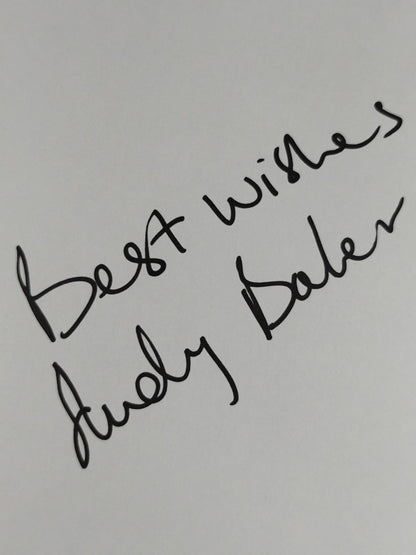 Best Wishes
Andy Baker